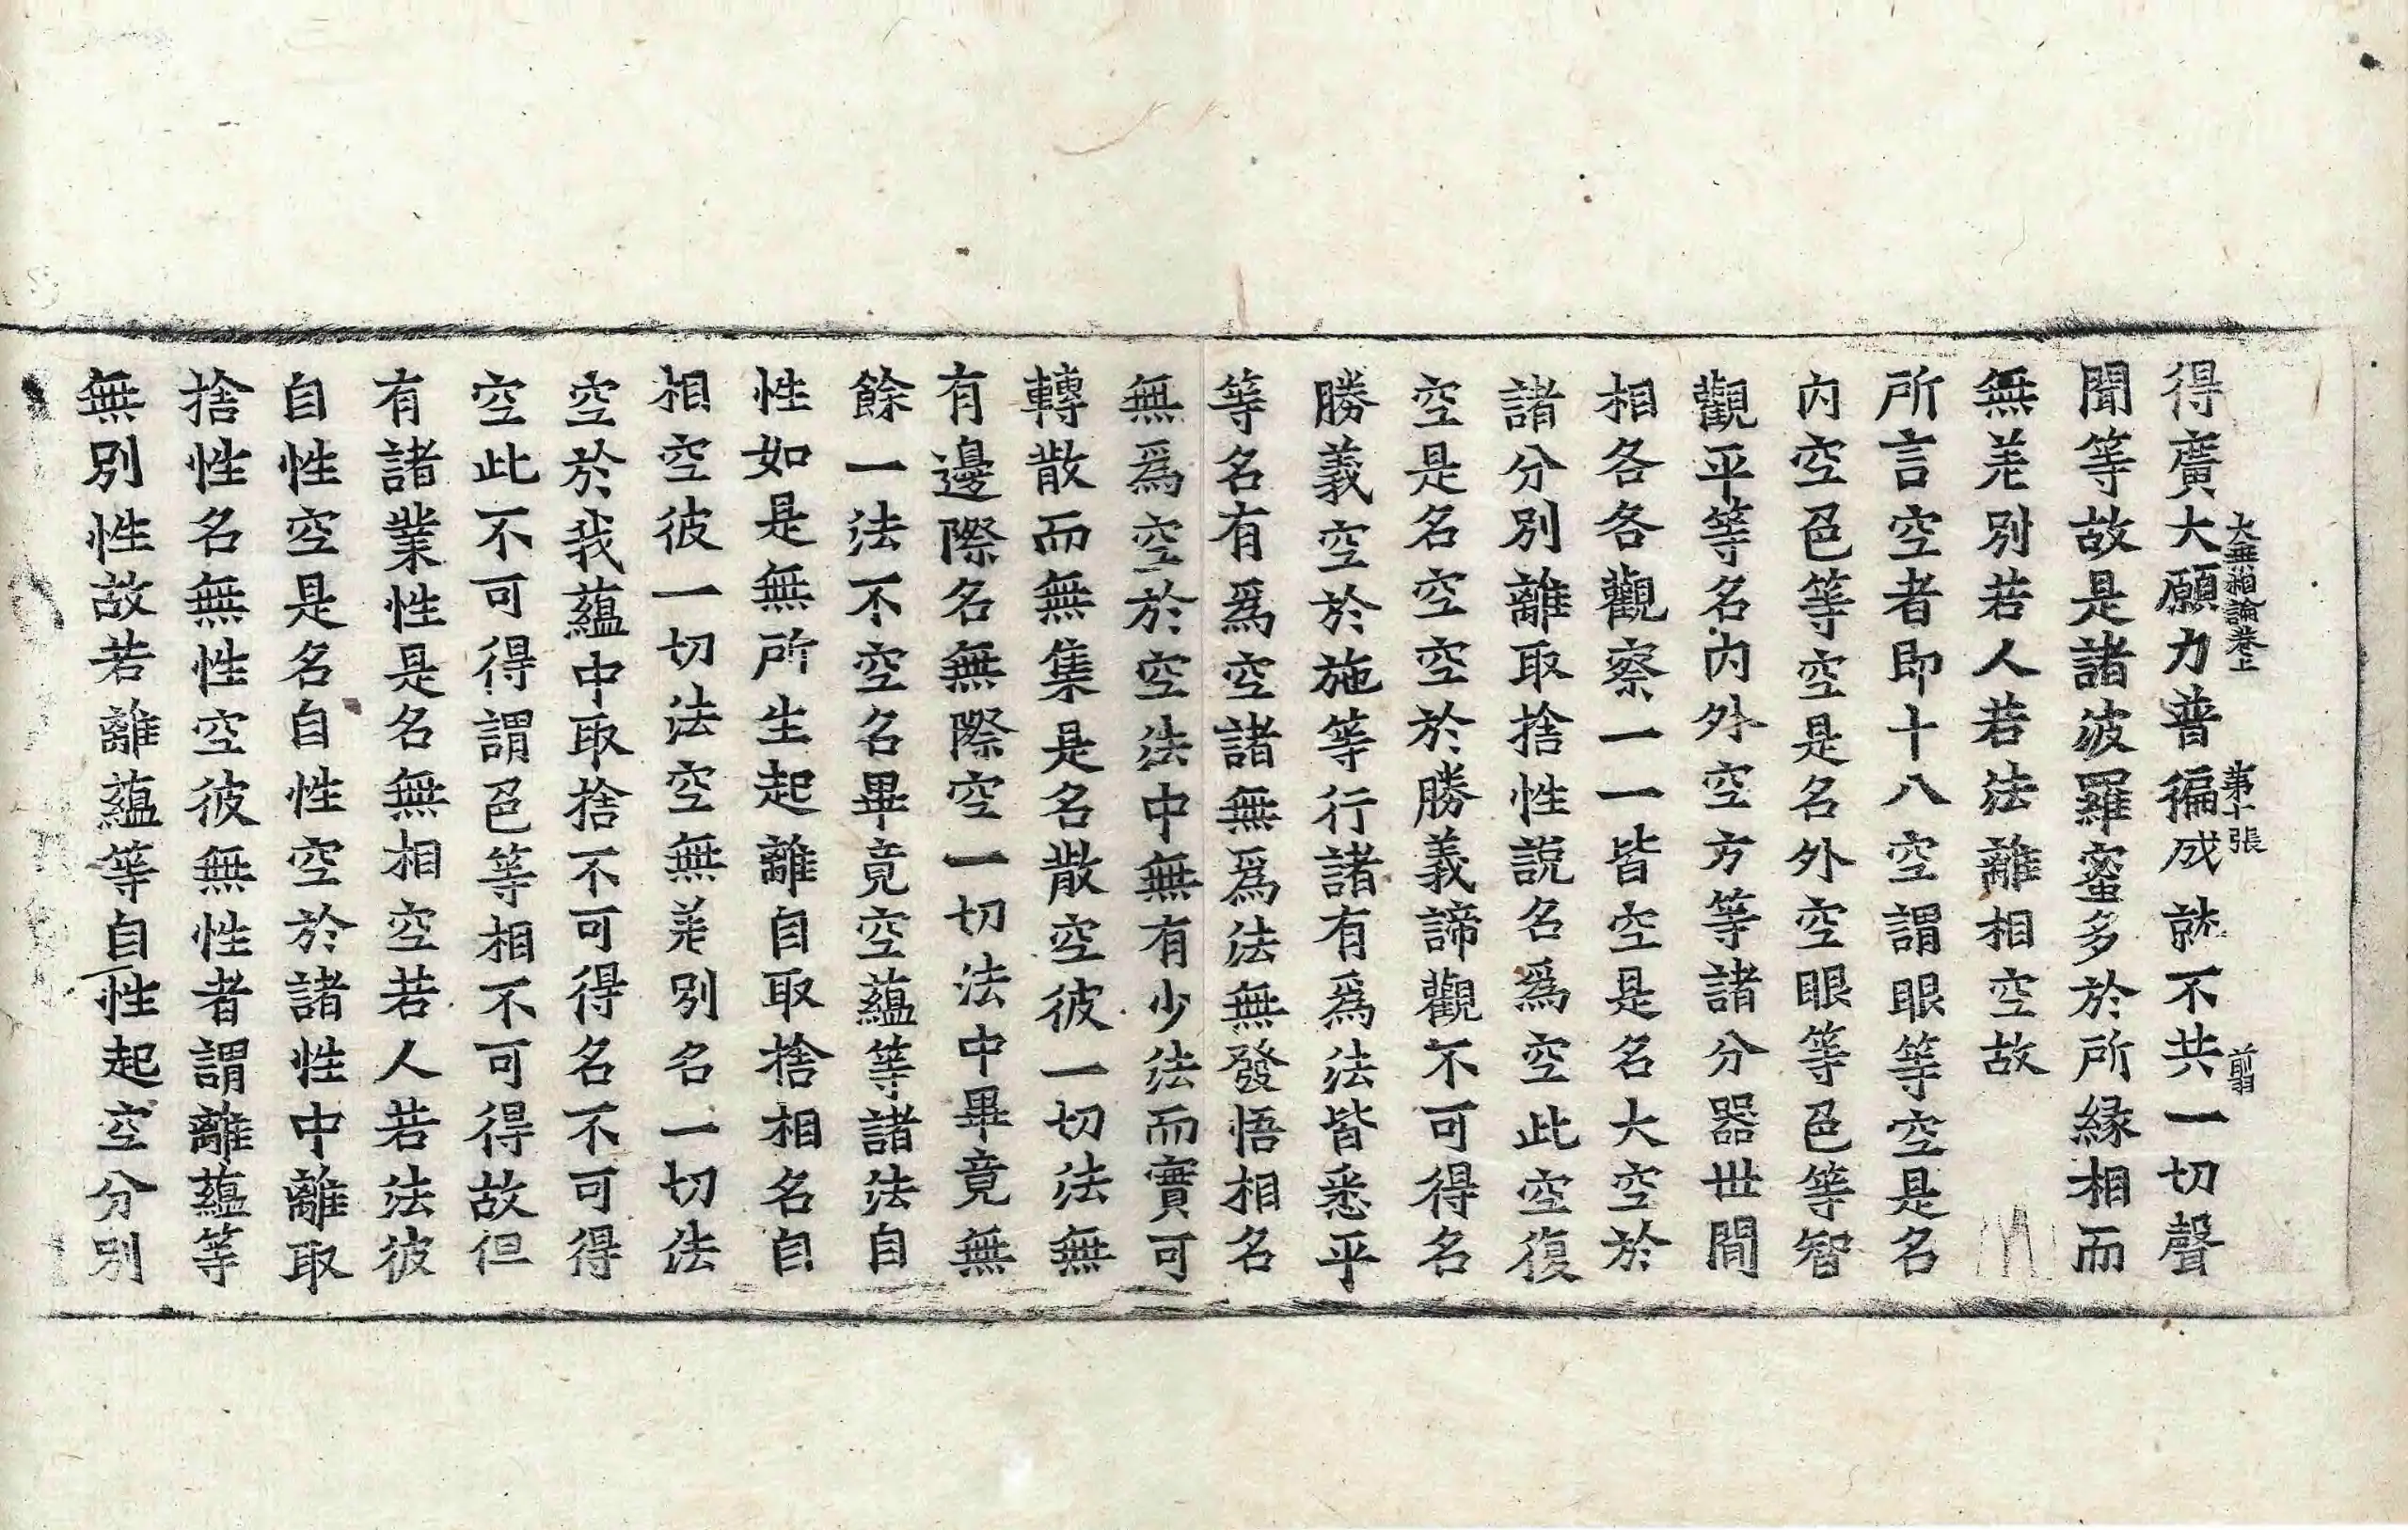 大無相論卷上 第十張 翦
得廣大願力普徧成就不共一切聲
聞等故是諸波羅蜜多於所緣相而
無差別若人若法離相空故
所言空者即十八空謂眼等空是名
內空色等空是名外空眼等色等智
觀平等名內外空方等諸分器世間
相各各觀察一一皆空是名大空於
諸分別離取捨性說名爲空此空復
空是名空空於勝義諦觀不可得名
勝義空於施等行諸有爲法皆悉平
等名有爲空諸無爲法無發悟相名
無爲空於空法中無有少法而實可
轉散而無集是名散空彼一切法無
有邊際名無際空一切法中畢竟無
餘一法不空名畢竟空蘊等諸法自
性如是無所生起離自取捨相名自
相空彼一切法空無差別名一切法
空於我蘊中取捨不可得名不可得
空此不可得謂色等相不可得故但
有諸業性是名無相空若人若法彼
自性空是名自性空於諸性中離取
捨性名無性空彼無性者謂離蘊等
無別性故若離蘊等自性起空分別